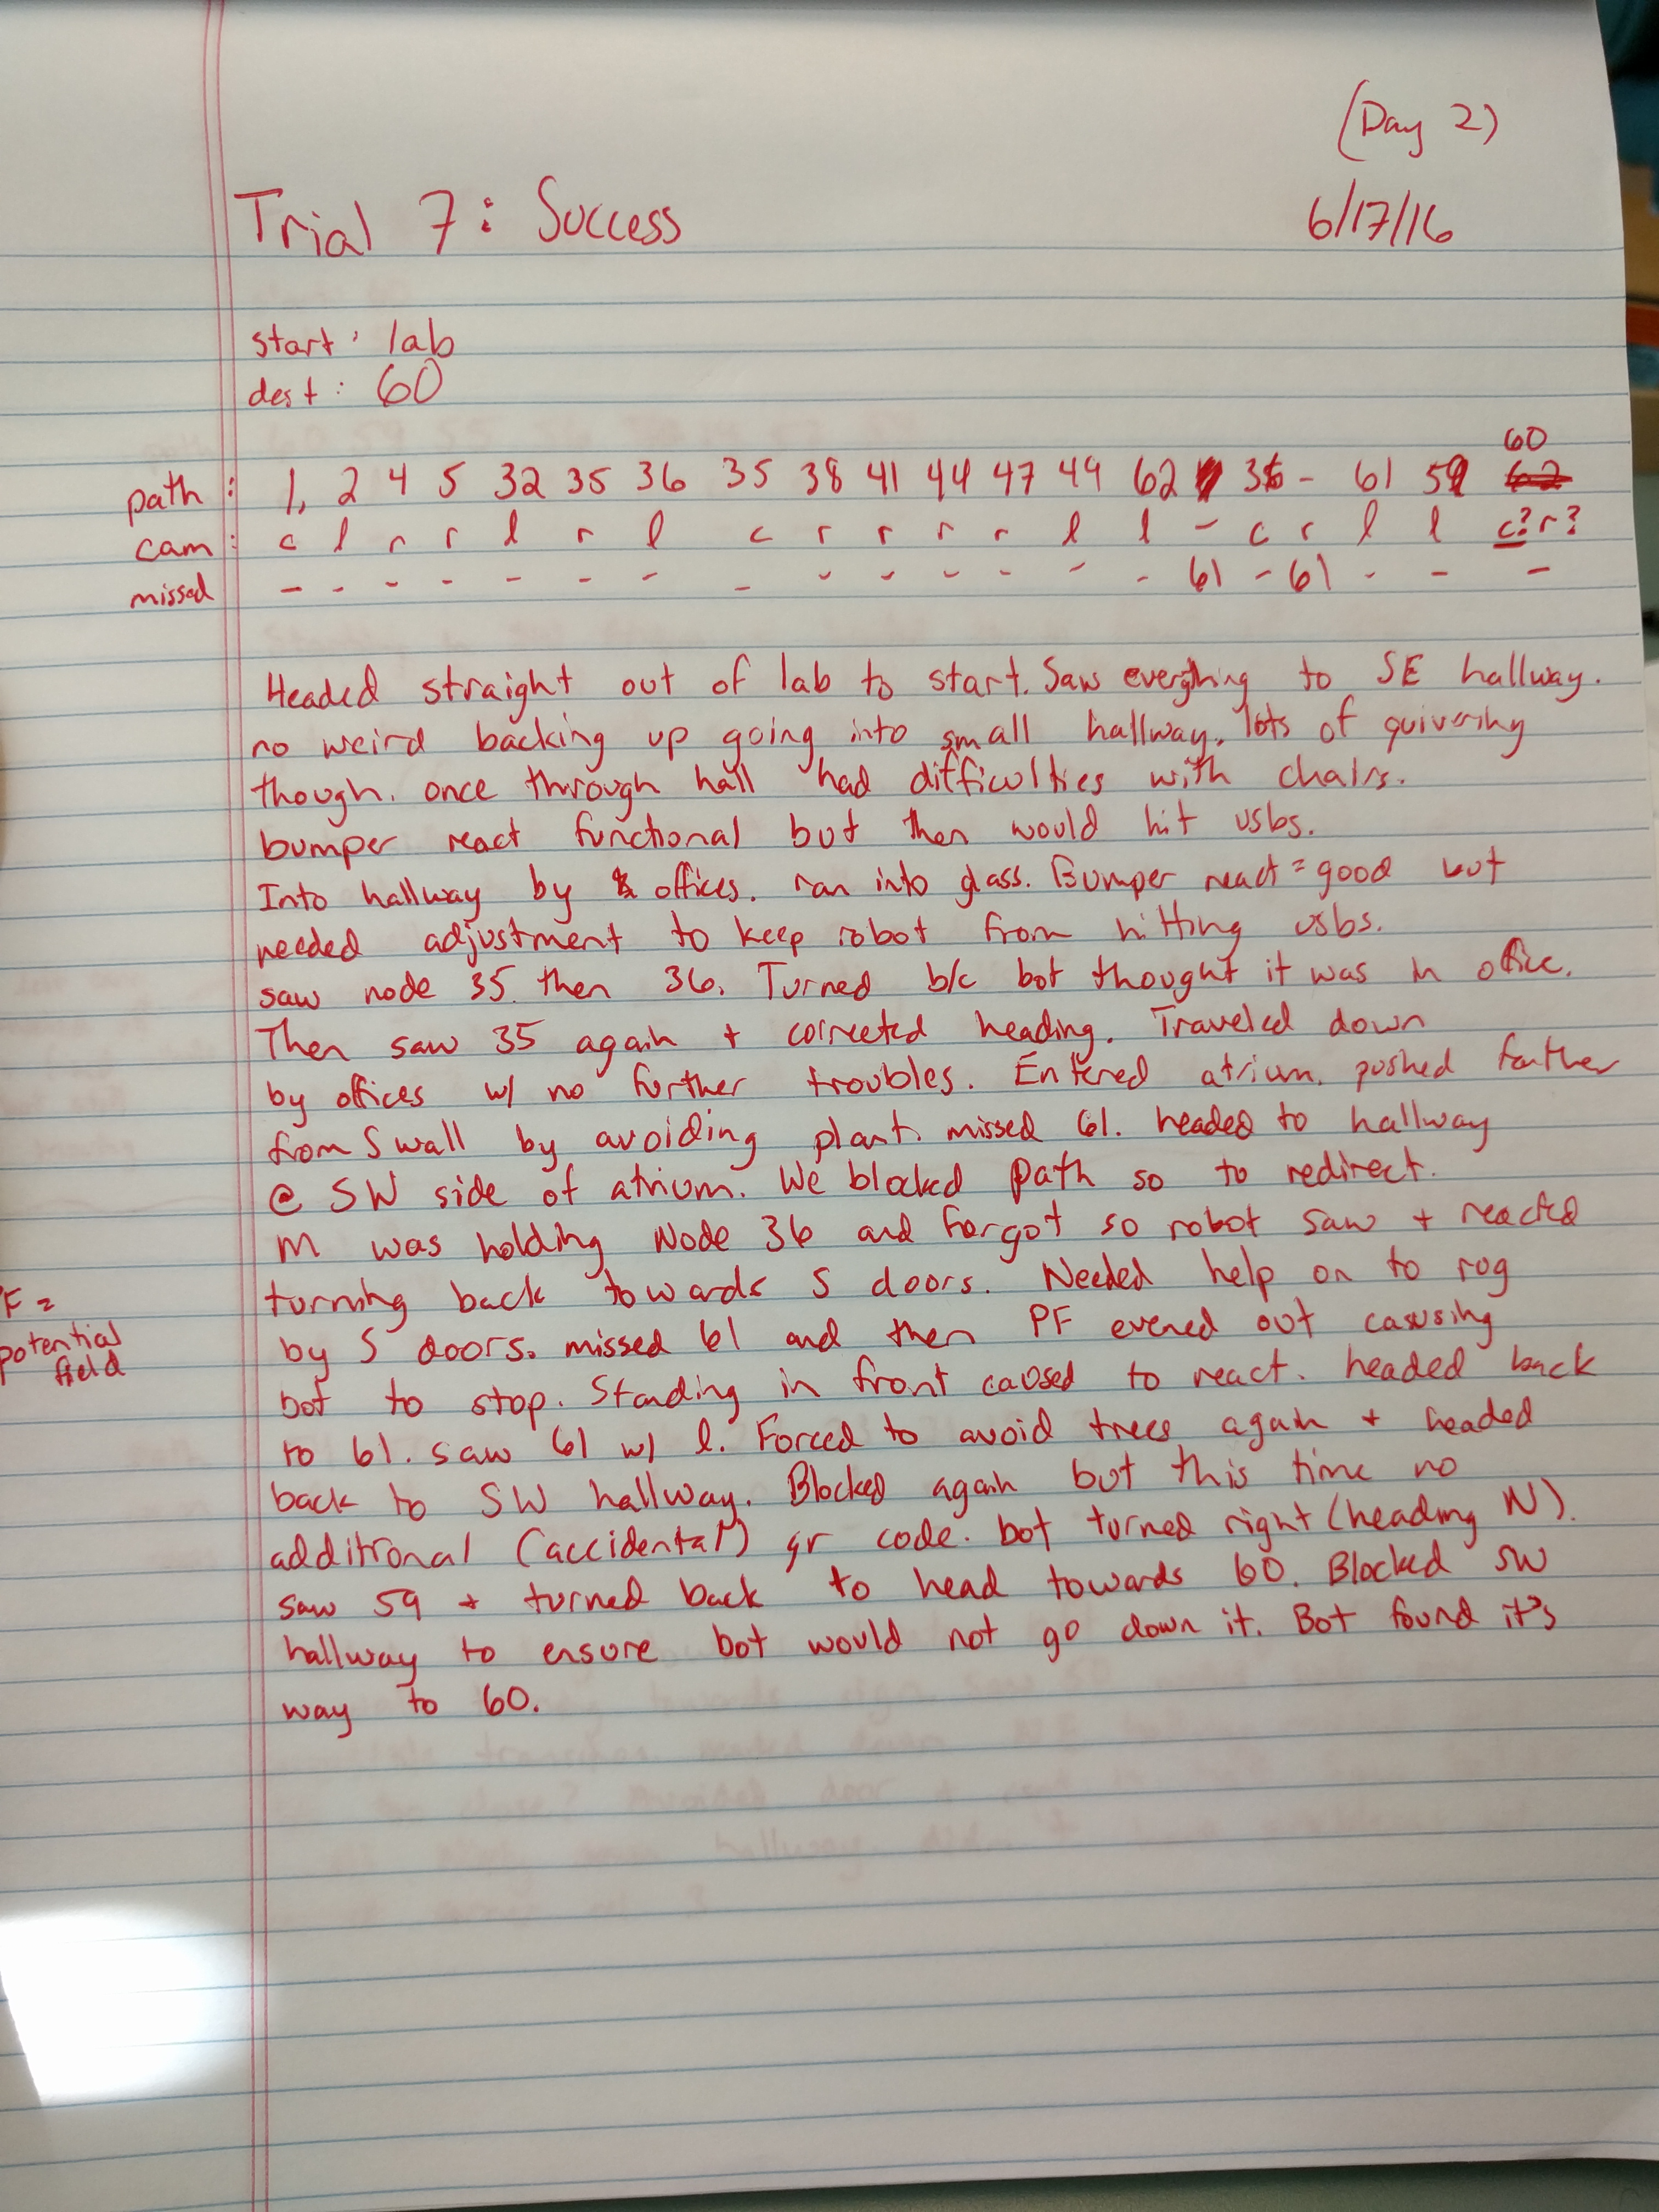 (Day 2)
Trial 7: Success
6/17/16
start: lab
dest: 60
60
path: 1, 2 4 5 32 35 36 35 38 41 44 47 49 62 36 - 61 59
cam: c l r r l r l c r r r r l l - c r l l c? r?
missed - - - - - - - - - - - - - - 61 - 61 - - -
Headed straight out of lab to start. Saw everything to SE hallway.
no weird backing up going into small hallway. lots of quivering
though. once through hall had difficulties with chairs.
bumper react functional but then would hit usbs.
Into hallway by offices. ran into glass. Bumper react = good but
needed adjustment to keep robot from hitting usbs.
saw node 35 then 36. Turned b/c bot thought it was in office.
Then saw 35 again + corrected heading. Traveled down
by offices w/ no further troubles. Entered atrium. pushed farther
from S wall by avoiding plant. missed 61. headed to hallway
@ SW side of atrium. We blocked path so to redirect.
M was holding Node 36 and forgot so robot saw + reacted
turning back towards S doors. Needed help on to rug
by S doors. missed 61 and then PF evened out causing
bot to stop. Standing in front caused to react. headed back
to 61. saw 61 w/ l. Forced to avoid trees again + headed
back to SW hallway. Blocked again but this time no
additional (accidental) qr code. bot turned right (heading N).
saw 59 + turned back to head towards 60. Blocked SW
hallway to ensure bot would not go down it. Bot found it's
way to 60.
F =
potential
field